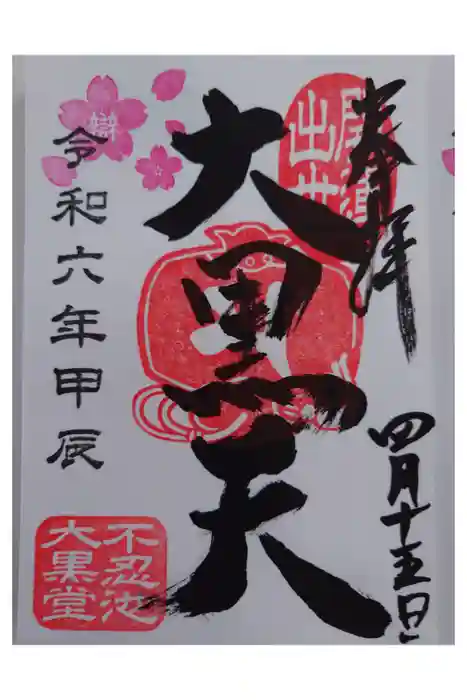 奉拝
四月十五日
開運
出世
大黒天
令和六年甲辰
不忍池
大黒堂